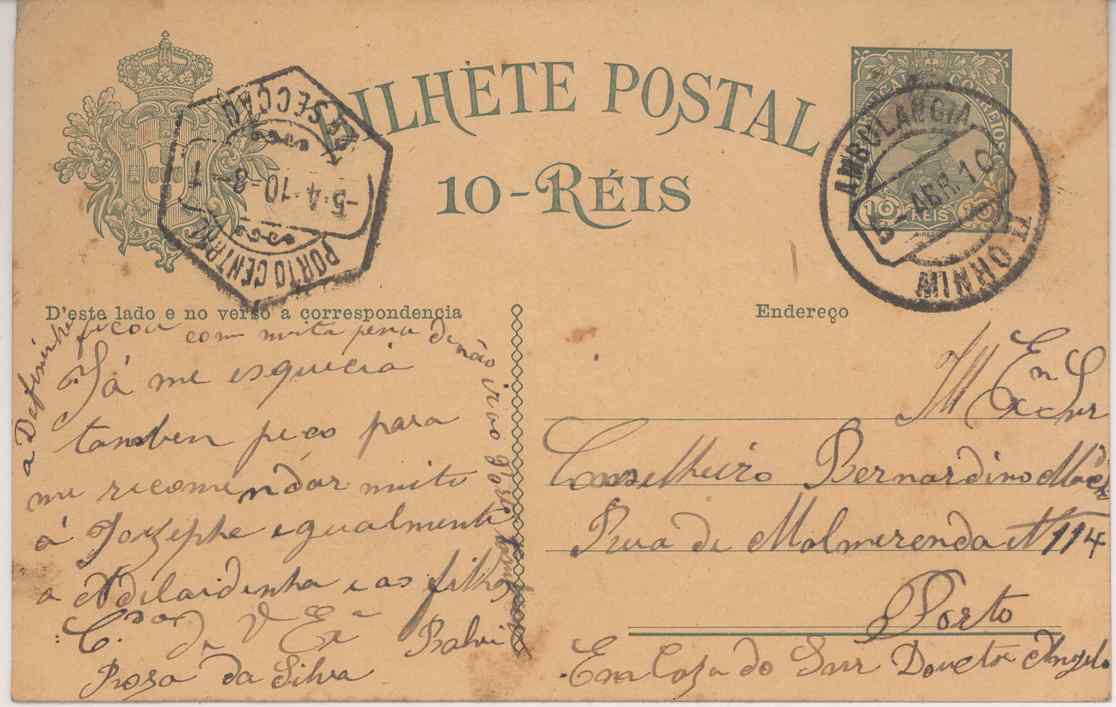 BILHETE POSTAL
10-RÉIS
CORREIOS
10 RÉIS 10
AMBULANCIA
5-ABR.10
MINHO
3ª SECÇÃO
5-4-10-8-T
PORTO CENTRAL
D'este lado e no verso a correspondencia
Endereço
a Dafininha ficou com muita pena de não ir
Já me esquecia
tamben peço para
me recomendar muito
á Jozephe egualmente
a Adelaidinha e as filhas
C.dor de V Exª
Rosa da Silva
Ill Exn Snr
Conselheiro Bernardino
Rua de Malmerenda Nº 114
Porto
Em Caza do Snr Doutor Angelo